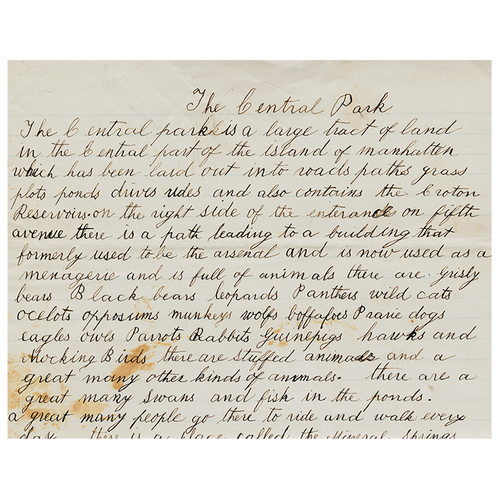 The Central Park
The Central park is a large tract of land
in the Central part of the island of manhatten
which has been laid out into roads pathes grass
plots ponds drives rides and also contains the Croton
Reservoirs. on the right side of the enterance on fifth
avenue there is a path leading to a building that
formerly used to be the arsenal and is now used as a
menagerie and is full of animals there are. grisly
bears Black bears leopards Panthers wild cats
ocelots opposiums munkeys wolfs boffafoes Prarie dogs
eagles owls Parrots Rabbits Guinepigs hawks and
Mocking Birds there are stuffed animals and a
great many other kinds of animals. there are a
great many swans and fish in the ponds.
a great many people go there to ride and walk every
day. there is a place called the Mineral Springs